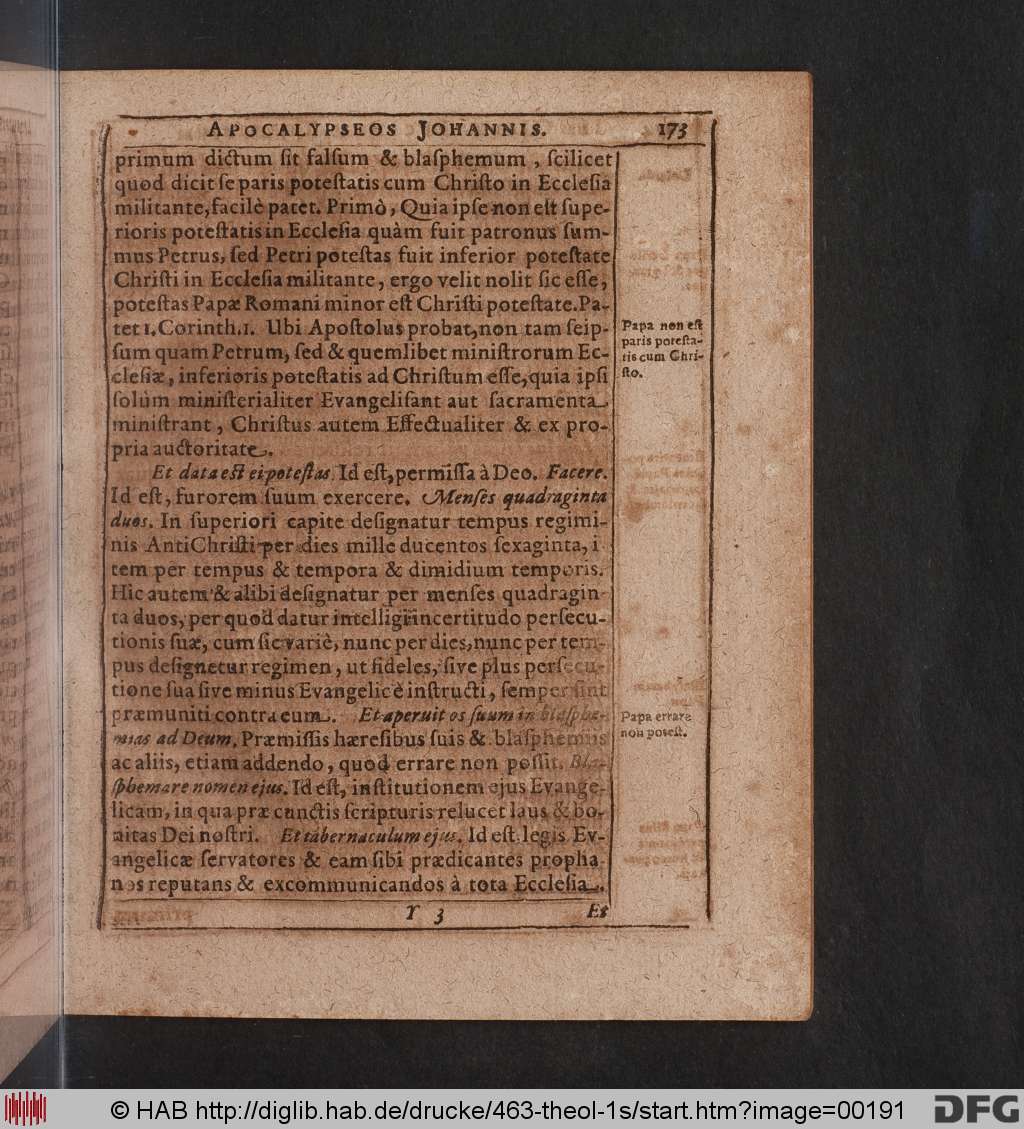 APOCALYPSEOS JOHANNIS. 173
primum dictum ſit falſum & blaſphemum, ſcilicet
quod dicit ſe paris poteſtatis cum Chriſto in Eccleſia
militante, facilè patet. Primò, Quia ipſe non eſt ſupe-
rioris poteſtatis in Eccleſia quàm fuit patronus ſum-
mus Petrus, ſed Petri poteſtas fuit inferior poteſtate
Chriſti in Eccleſia militante, ergo velit nolit ſic eſſe,
poteſtas Papæ Romani minor eſt Chriſti poteſtate. Pa-
tet 1. Corinth. 1. Ubi Apoſtolus probat, non tam ſeip-
ſum quam Petrum, ſed & quemlibet miniſtrorum Ec-
cleſiæ, inferioris poteſtatis ad Chriſtum eſſe, quia ipſi
ſolùm miniſterialiter Evangeliſant aut ſacramenta
miniſtrant, Chriſtus autem Effectualiter & ex pro-
pria auctoritate.
Papa non eſt
paris poteſta-
tis cum Chri-
ſto.
Et data eſt ei poteſtas. Id eſt, permiſſa à Deo. Facere.
Id eſt, furorem ſuum exercere. Menſes quadraginta
duos. In ſuperiori capite deſignatur tempus regimi-
nis AntiChriſti per dies mille ducentos ſexaginta, i
tem per tempus & tempora & dimidium temporis.
Hic autem & alibi deſignatur per menſes quadragin-
ta duos, per quod datur intelligi incertitudo perſecu-
tionis ſuæ, cum ſic variè, nunc per dies, nunc per tem-
pus deſignetur regimen, ut fideles, ſive plus perſecu-
tione ſua ſive minus Evangelicè inſtructi, ſemper ſint
præmuniti contra eum. Et aperuit os ſuum in blaſphe-
mias ad Deum. Præmiſſis hæreſibus ſuis & blaſphemiis
ac aliis, etiam addendo, quod errare non poſſit. Bla-
ſphemare nomen ejus. Id eſt, inſtitutionem ejus Evange-
licam, in qua præ cunctis ſcripturis relucet laus & bo-
nitas Dei noſtri. Et tabernaculum ejus. Id eſt legis Ev-
angelicæ ſervatores & eam ſibi prædicantes propha
nos reputans & excommunicandos à tota Eccleſia.
Papa errare
non poteſt.
Y 3 Et
© HAB http://diglib.hab.de/drucke/463-theol-1s/start.htm?image=00191 DFG